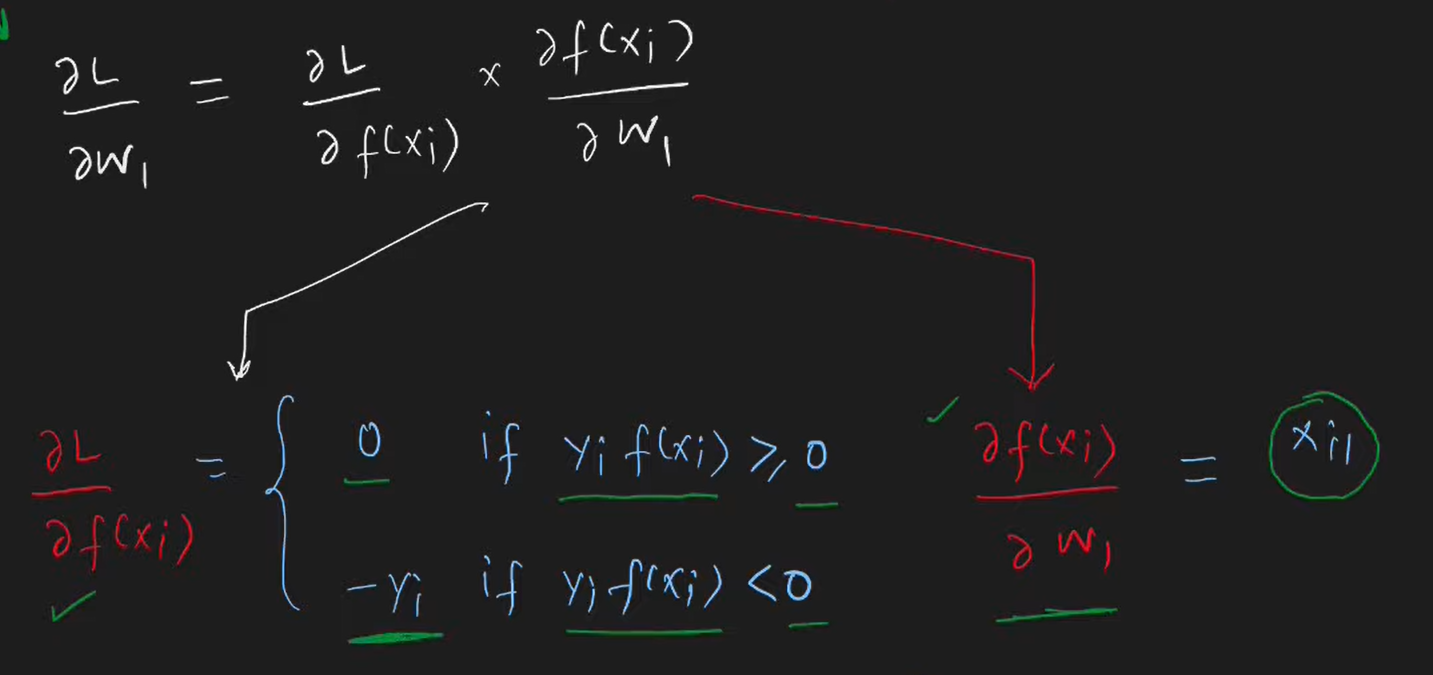 ∂L/∂W₁ = ∂L/∂f(xᵢ) × ∂f(xᵢ)/∂W₁
∂L/∂f(xᵢ) = { 0 if yᵢ f(xᵢ) ≥ 0
-yᵢ if yᵢ f(xᵢ) < 0
∂f(xᵢ)/∂W₁ = xᵢ₁